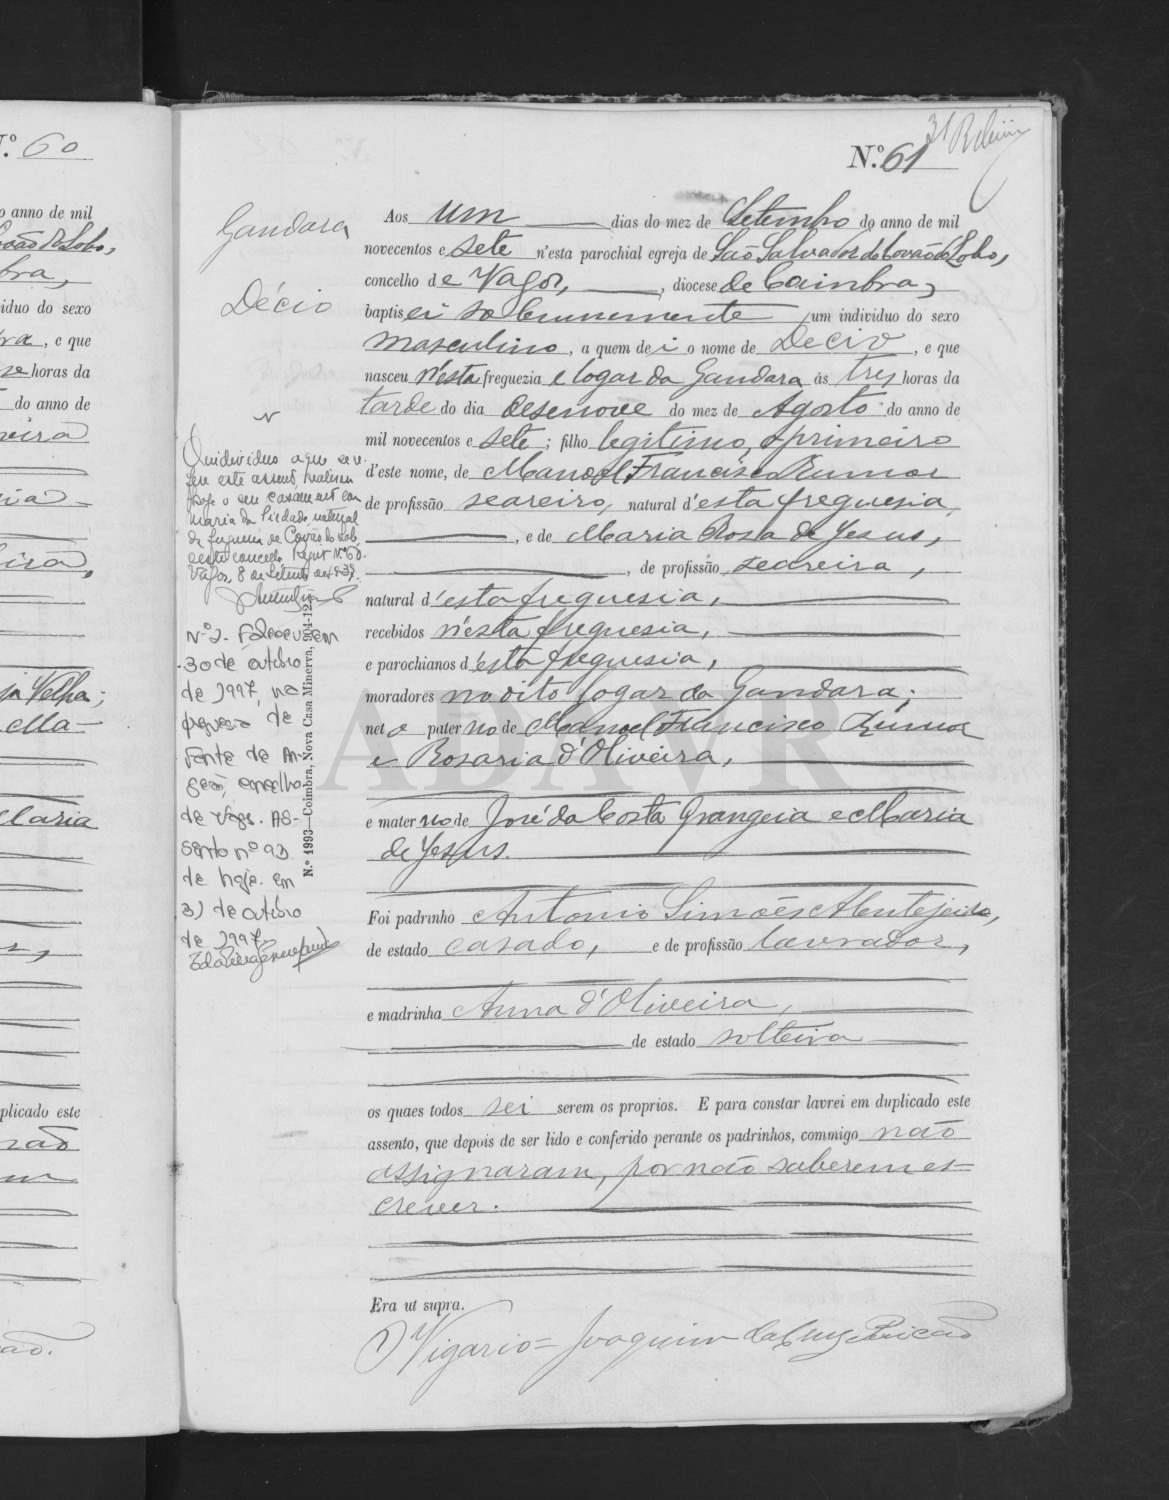 N.º 60
o anno de mil
ovão do Lobo,
bra,
iduo do sexo
ra, e que
horas da
do anno de
eira
ja Velha;
Ma-
Maria
plicado este
não
ão.
31
N.º 61
Gandara
Décio
Aos um dias do mez de Setembro do anno de mil
novecentos e sete n'esta parochial egreja de São Salvador do Covão do Lobo,
concelho de Vagos, , diocese de Coimbra,
baptisei solemnemente um individuo do sexo
masculino, a quem dei o nome de Decio, e que
nasceu n'esta freguezia e logar da Gandara ás tres horas da
tarde do dia desenove do mez de Agosto do anno de
mil novecentos e sete; filho legitimo, e primeiro
d'este nome, de Manoel Francisco Rumor
de profissão seareiro, natural d'esta freguesia,
, e de Maria Rosa de Jesus,
, de profissão seareira,
natural d'esta freguesia,
recebidos n'esta freguesia,
e parochianos d'esta freguesia,
moradores no dito logar da Gandara;
neto paterno de Manoel Francisco Rumor
e Rosaria d'Oliveira,
e materno de José da Costa Grangeia e Maria
de Jesus.
Foi padrinho Antonio Simões Alentejeiro,
de estado casado, e de profissão lavrador,
e madrinha Anna d'Oliveira,
de estado solteira
os quaes todos sei serem os proprios. E para constar lavrei em duplicado este
assento, que depois de ser lido e conferido perante os padrinhos, commigo não
assignaram, por não saberem es-
crever.
Era ut supra.
O Vigario = Joaquim da Cruz Pericão
O individuo a que se re-
fere este assento, realisou
hoje o seu casamento com
Maria da Piedade, natural
da freguesia de Covão do Lobo
deste concelho. Registo Nº 60.
Vagos, 8 de Setembro de 937.
Nº 2. Faleceu em
30 de outubro
de 1997, na
freguesia de
Fonte de An-
geão, concelho
de Vagos. As-
sento nº 93
de hoje. Em
31 de outubro
de 1997.
N.º 1993—Coimbra, Nova Casa Minerva, 904-12
ADAVR